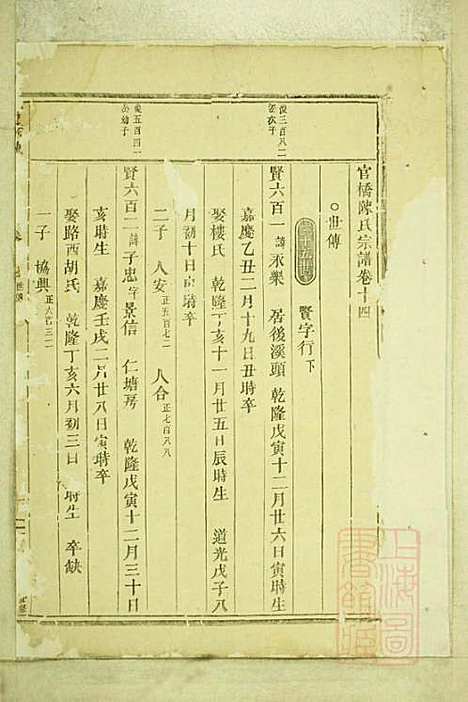 官橋陳氏宗譜卷十四
世傳
賢字行下
俊三百八二
公次子
賢六百一 諱永樂 居後溪頭 乾隆戊寅十二月廿六日寅時生
嘉慶乙丑二月十九日丑時卒
娶樓氏 乾隆丁亥十一月廿五日辰時生 道光戊子八
月初十日寅時卒
二子 人安 正五百七二 人合 正七百八八
俊五百四一
公幼子
賢六百二 諱子忠 字景信 仁塘房 乾隆戊寅十二月三十日
亥時生 嘉慶壬戌二月廿八日寅時卒
娶路西胡氏 乾隆丁亥六月初三日 時生 卒缺
一子 協興
上海圖書館藏